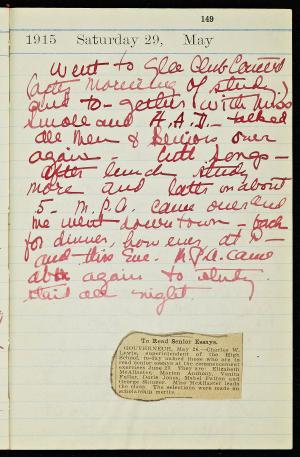 149
1915 Saturday 29, May
Went to Glee Club
(after morning of study)
and to-gether with Miss
and H.A.D. talked
all men & Seniors over
again – songs –
After lunch study
more and later on about
5 – M.P.A. came over and
we went down town – back
for dinner, however, at
and this Eve. M.P.A. came
again to study
all night
To Read Senior Essays.
GOUVERNEUR, May 28.—Charles W.
Lewis, superintendent of the High
School, to-day named those who are to
read senior essays at the commencement
exercises June 23. They are: Elizabeth
McAllaster, Marion Anthony, Vinita
Fuller, Doris Jones, Mabel Palmer and
George Skinner. Miss McAllaster leads
the class. The selections were made on
scholarship merits.